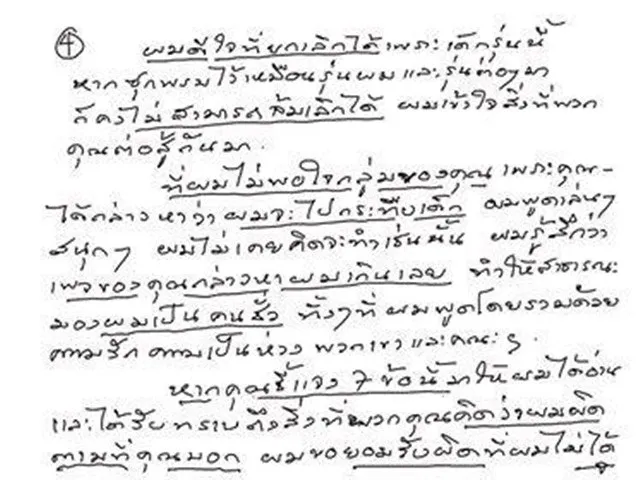 ④ ผมดีใจที่ยกเลิกได้ เพราะเด็กรุ่นนี้
หากซุกพรมไว้เหมือนรุ่นผม และรุ่นต่อๆมา
ก็คงไม่สามารถล้มเลิกได้ ผมเข้าใจสิ่งที่พวก
คุณต่อสู้กันมา.
ที่ผมไม่พอใจกลุ่มของคุณ เพราะคุณ-
ได้กล่าวหาว่าผมจะไปกระทืบเด็ก ผมพูดเล่นๆ
สนุกๆ ผมไม่เคยคิดจะทำเช่นนั้น ผมรู้สึกว่า
เพจของคุณกล่าวหาผมเกินเลย ทำให้สาธารณะ
มองผมเป็นคนชั่ว ทั้งๆที่ผมพูดโดยรวมด้วย
ความรัก ความเป็นห่วง พวกเขา และคณะฯ.
หากคุณชี้แจง 7 ข้อนี้มาให้ผมได้อ่าน
และได้รับทราบถึงสิ่งที่พวกคุณคิดว่าผมผิด
ตามที่คุณบอก ผมขอยอมรับผิดที่ผมไม่ได้